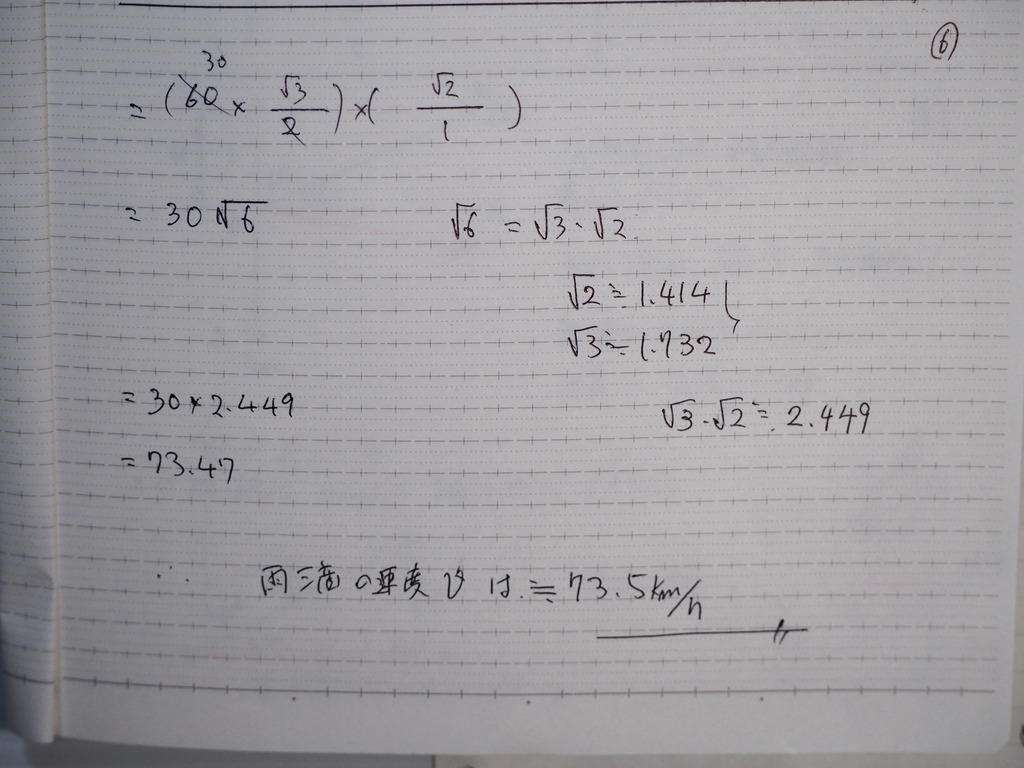 ⑥
30
= (60 × √3/2) × (√2/1)
= 30√6
√6 = √3・√2
√2 ≒ 1.414
√3 ≒ 1.732
= 30 × 2.449
√3・√2 ≒ 2.449
= 73.47
∴ 雨滴の速度 v は ≒ 73.5 km/h